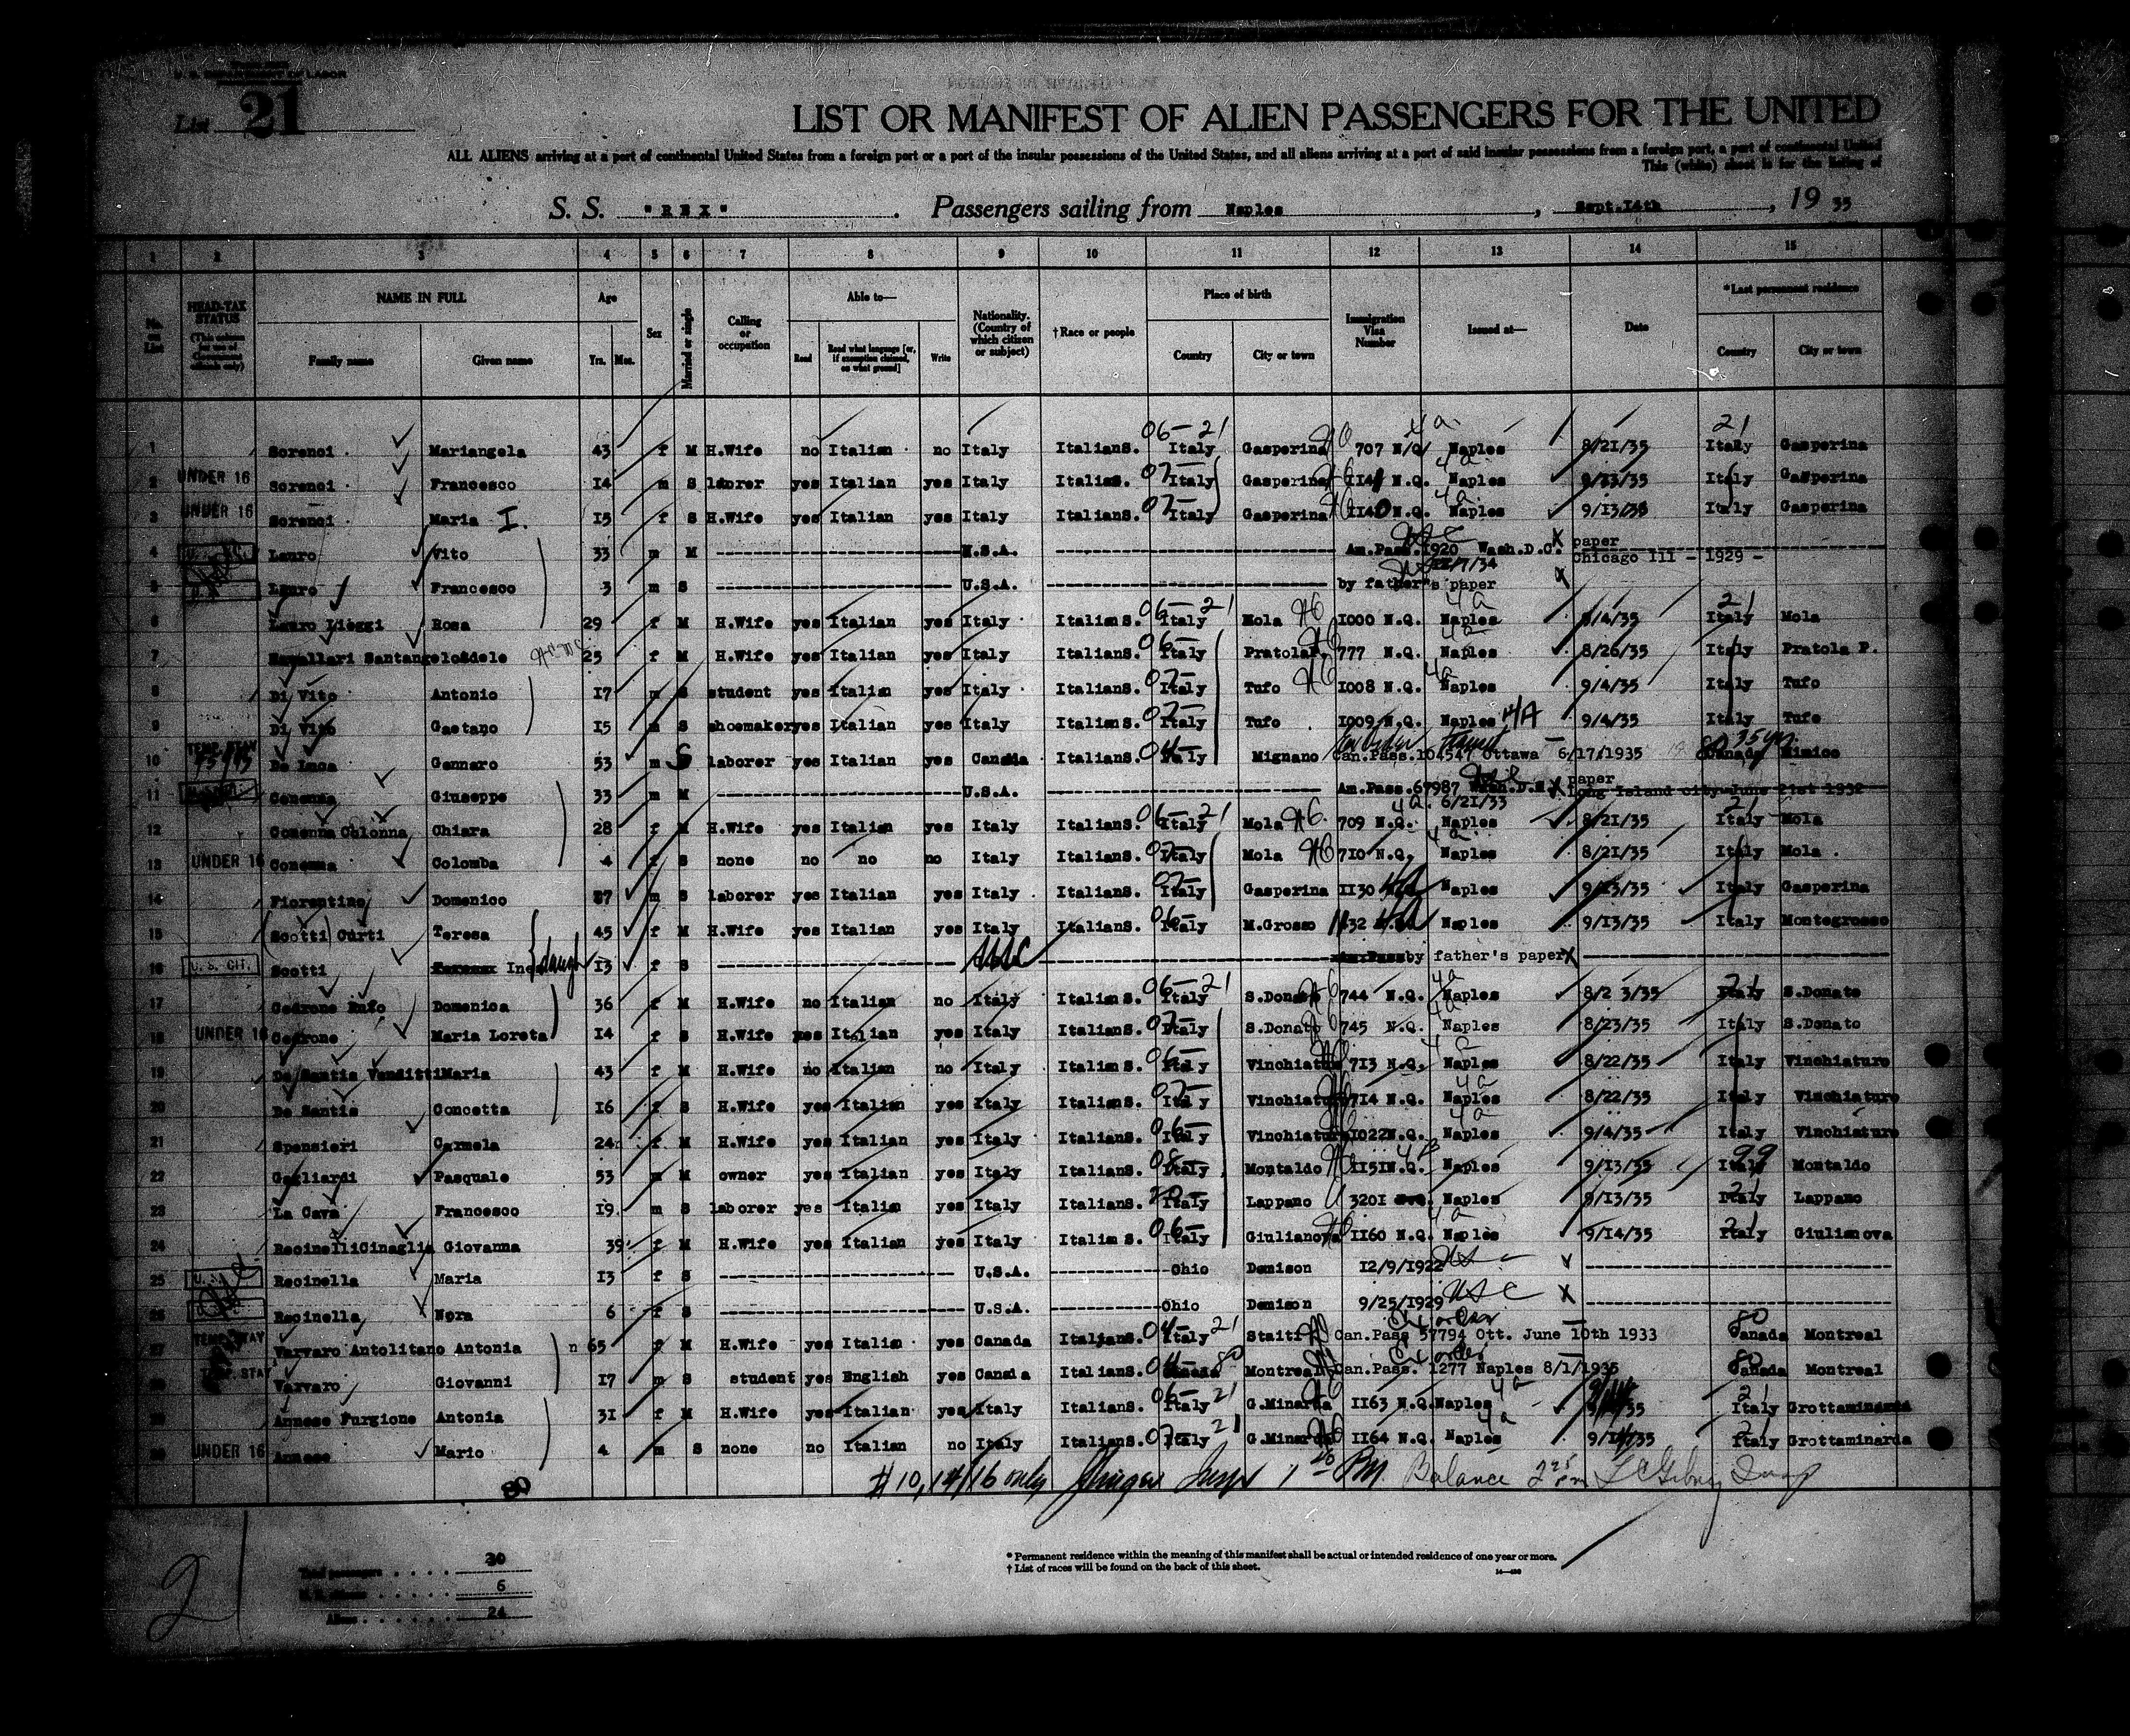 U. S. DEPARTMENT OF LABOR
List 21
LIST OR MANIFEST OF ALIEN PASSENGERS FOR THE UNITED
ALL ALIENS arriving at a port of continental United States from a foreign port or a port of the insular possessions of the United States, and all aliens arriving at a port of said insular possessions from a foreign port, a port of continental United
This (white) sheet is for the listing of
S. S. "REX". Passengers sailing from Naples, Sept.14th, 19 35
1 2 3 4 5 6 7 8 9 10 11 12 13 14 15
No. on List HEAD-TAX STATUS NAME IN FULL Family name Given name Age Yrs. Mos. Sex Married or single Calling or occupation Able to— Read Read what language [or, if exemption claimed, on what ground] Write Nationality. (Country of which citizen or subject) †Race or people Place of birth Country City or town Immigration Visa Number Issued at— Date *Last permanent residence Country City or town
1 Sorenci Mariangela 43 f M H.Wife no Italian no Italy ItalianS. 06- 21 Italy Gasperina 707 N/Q/ 4a Naples 8/21/35 21 Italy Gasperina
2 UNDER 16 Sorenci Francesco 14 m S laborer yes Italian yes Italy Italian. 07- Italy Gasperina N.Q. 4a Naples 9/13/35 Italy Gasperina
3 UNDER 16 Sorenci Maria I. 15 f S H.Wife yes Italian yes Italy ItalianS. 07- Italy Gasperina 1140 N.Q. 4a Naples 9/13/35 Italy Gasperina
4 Lauro Vito 33 m M U.S.A. Am.Pass.1920 Wash.D.C. X paper Chicago Ill - 1929 -
5 Lauro Francesco 3 m S U.S.A. by father's paper X
6 Lauro Lieggi Rosa 29 f M H.Wife yes Italian yes Italy ItalianS. 06- 21 Italy Mola 1000 N.Q. 4a Naples 9/4/35 21 Italy Mola
7 Santangelo Adele 25 f M H.Wife yes Italian yes Italy ItalianS. 06- Italy Pratola 777 N.Q. 4a Naples 8/26/35 Italy Pratola P.
8 Di Vito Antonio 17 m S student yes Italian yes Italy ItalianS. 07- Italy Tufo 1008 N.Q. 4a Naples 9/4/35 Italy Tufo
9 Di Vito Gaetano 15 m S shoemaker yes Italian yes Italy ItalianS. 07- Italy Tufo 1009 N.Q. Naples 4A 9/4/35 Italy Tufo
10 TEMP. STAY De Luca Gennaro 53 m S laborer yes Italian yes Canada ItalianS. 04- Italy Mignano Can.Pass.104547 Ottawa 6/17/1935 Canada Mimico
11 Conenna Giuseppe 33 m M U.S.A. Am.Pass.67987 Wash.D.C. 6/21/33 X paper Long Island city June 21st 1932
12 Conenna Colonna Chiara 28 f M H.Wife yes Italian yes Italy ItalianS. 06- 21 Italy Mola 709 N.Q. 4a. Naples 8/21/35 21 Italy Mola
13 UNDER 16 Conenna Colomba 4 f S none no no no Italy ItalianS. 07- Italy Mola 710 N.Q. 4a Naples 8/21/35 Italy Mola
14 Fiorentino Domenico m S laborer yes Italian yes Italy ItalianS. 07- Italy Gasperina 1130 Naples 9/13/35 Italy Gasperina
15 Scotti Curti Teresa 45 f M H.Wife yes Italian yes Italy ItalianS. 06- Italy M.Grosso 1132 Naples 9/13/35 Italy Montegrosso
16 U. S. CIT. Scotti Ines daugh 13 f S USC by father's paper X
17 Cedrone Rufo Domenica 36 f M H.Wife no Italian no Italy ItalianS. 06- 21 Italy S.Donato 744 N.Q. 4a Naples 8/23/35 21 Italy S.Donato
18 UNDER 16 Cedrone Maria Loreta 14 f S H.Wife yes Italian yes Italy ItalianS. 07- Italy S.Donato 745 N.Q. 4a Naples 8/23/35 Italy S.Donato
19 De Santis Venditti Maria 43 f M H.Wife no Italian no Italy ItalianS. 06- Italy Vinchiature 713 N.Q. 4a Naples 8/22/35 Italy Vinchiature
20 De Santis Concetta 16 f S H.Wife yes Italian yes Italy ItalianS. 07- Italy Vinchiature 714 N.Q. 4a Naples 8/22/35 Italy Vinchiature
21 Spensieri Carmela 24 f M H.Wife yes Italian yes Italy ItalianS. 06- Italy Vinchiature 1022 N.Q. 4a Naples 9/4/35 Italy Vinchiature
22 Gagliardi Pasquale 53 m M owner yes Italian yes Italy ItalianS. 08- Italy Montaldo 1151 N.Q. Naples 9/13/35 99 Italy Montaldo
23 La Cava Francesco 19 m S laborer yes Italian yes Italy ItalianS. Italy Lappano 3201 Naples 9/13/35 21 Italy Lappano
24 Recinelli Cinaglia Giovanna 39 f M H.Wife yes Italian yes Italy ItalianS. 06- Italy Giulianova 1160 N.Q. 4a Naples 9/14/35 21 Italy Giulianova
25 Recinella Maria 13 f S U.S.A. Ohio Denison 12/9/1922
26 Recinella Nora 6 f S U.S.A. Ohio Denison 9/25/1929 USC X
27 TEMP. STAY Varvaro Antolitano Antonia 65 f M H.Wife yes Italian yes Canada ItalianS. 04- 21 Italy Staiti Can.Pass 57794 Ott. June 10th 1933 80 Canada Montreal
28 TEMP. STAY Varvaro Giovanni 17 m S student yes English yes Canada ItalianS. 04- 80 Canada Montreal Can.Pass. 1277 Naples 8/1/1935 80 Canada Montreal
29 Annese Furgione Antonia 31 f M H.Wife yes Italian yes Italy ItalianS. 06- 21 Italy G.Minarda 1163 N.Q. Naples 4a 21 Italy Grottaminarda
30 UNDER 16 Annese Mario 4 m S none no Italian no Italy ItalianS. 07- 21 Italy G.Minarda 1164 N.Q. 4a Naples 9/14/35 Italy Grottaminarda
# 10, 14/16 only Insp PM Balance Insp
30
Total passengers 30
U. S. citizens 6
Aliens 24
21
* Permanent residence within the meaning of this manifest shall be actual or intended residence of one year or more.
† List of races will be found on the back of this sheet.